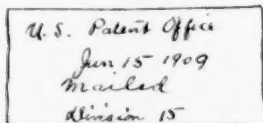 U. S. Patent Office
Jun 15 1909
Mailed
Division 15